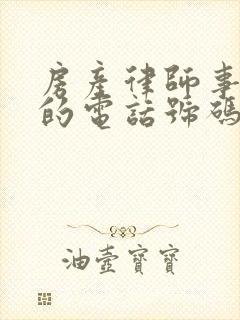 房產律師事
的電話號碼
油壺寶寶